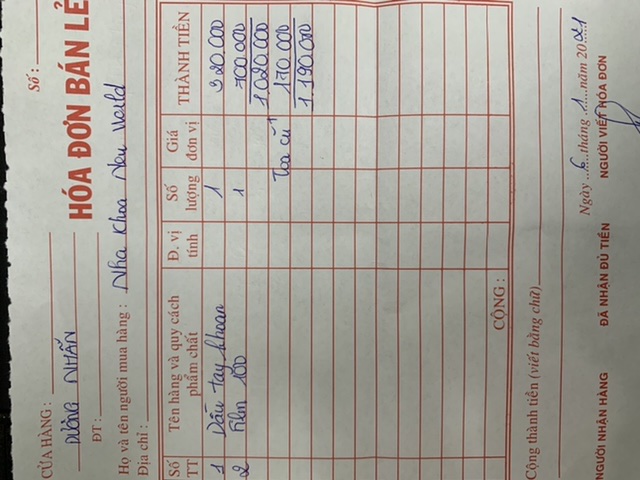 CỬA HÀNG :
DƯƠNG NHẪN
Số :
ĐT :
HÓA ĐƠN BÁN LẺ
Họ và tên người mua hàng : Nha Khoa New World
Địa chỉ :
Số TT Tên hàng và quy cách phẩm chất Đ. vị tính Số lượng Giá đơn vị THÀNH TIỀN
1 Dầu tay khoan 1 320.000
2 Film 100 1 700.000
1.020.000
Toa cũ 170.000
1.190.000
CỘNG :
Cộng thành tiền (viết bằng chữ)
Ngày 6 tháng 1 năm 2021
NGƯỜI NHẬN HÀNG ĐÃ NHẬN ĐỦ TIỀN NGƯỜI VIẾT HÓA ĐƠN